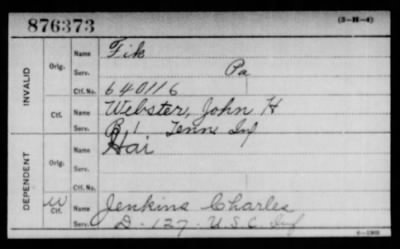 876373
(3-H-4)
INVALID
Orig.
Name
Serv.
Pa
Ctf. No.
640116
Ctf.
Name
Webster, John H
Serv.
B 1 Tenn Inf
DEPENDENT
Orig.
Name
Serv.
Ctf. No.
Ctf.
Name
Jenkins Charles
Serv.
D - 127 - U.S.C. Inf